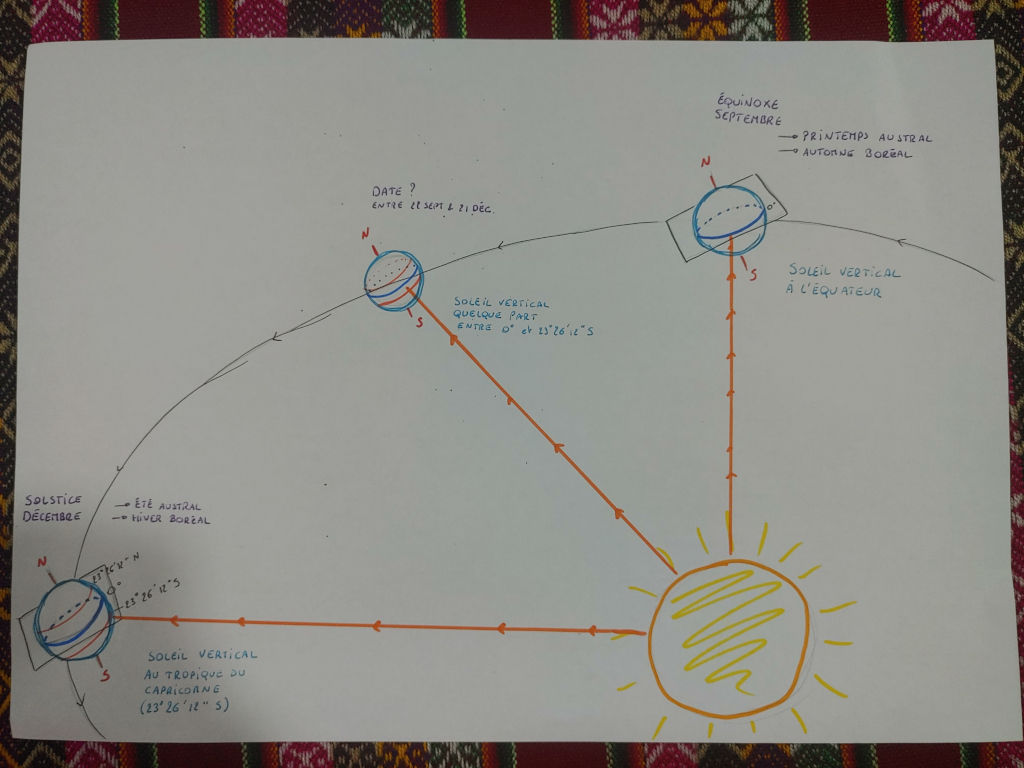 ÉQUINOXE
SEPTEMBRE
→ PRINTEMPS AUSTRAL
→ AUTOMNE BORÉAL
N
O°
S
SOLEIL VERTICAL
À L'ÉQUATEUR
DATE ?
ENTRE 22 SEPT & 21 DÉC.
N
S
SOLEIL VERTICAL
QUELQUE PART
ENTRE 0° et 23°26'12" S
SOLSTICE
DÉCEMBRE
→ ÉTÉ AUSTRAL
→ HIVER BORÉAL
N
23°26'12" N
0°
23°26'12" S
S
SOLEIL VERTICAL
AU TROPIQUE DU
CAPRICORNE
(23°26'12" S)